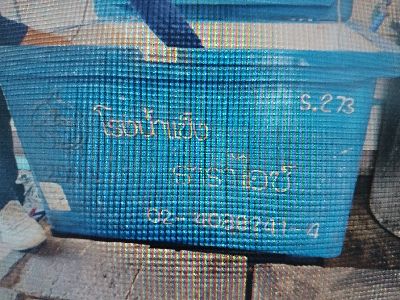 S.273
โรงน้ำแข็ง
ธาราไอซ์
02-4038241-4